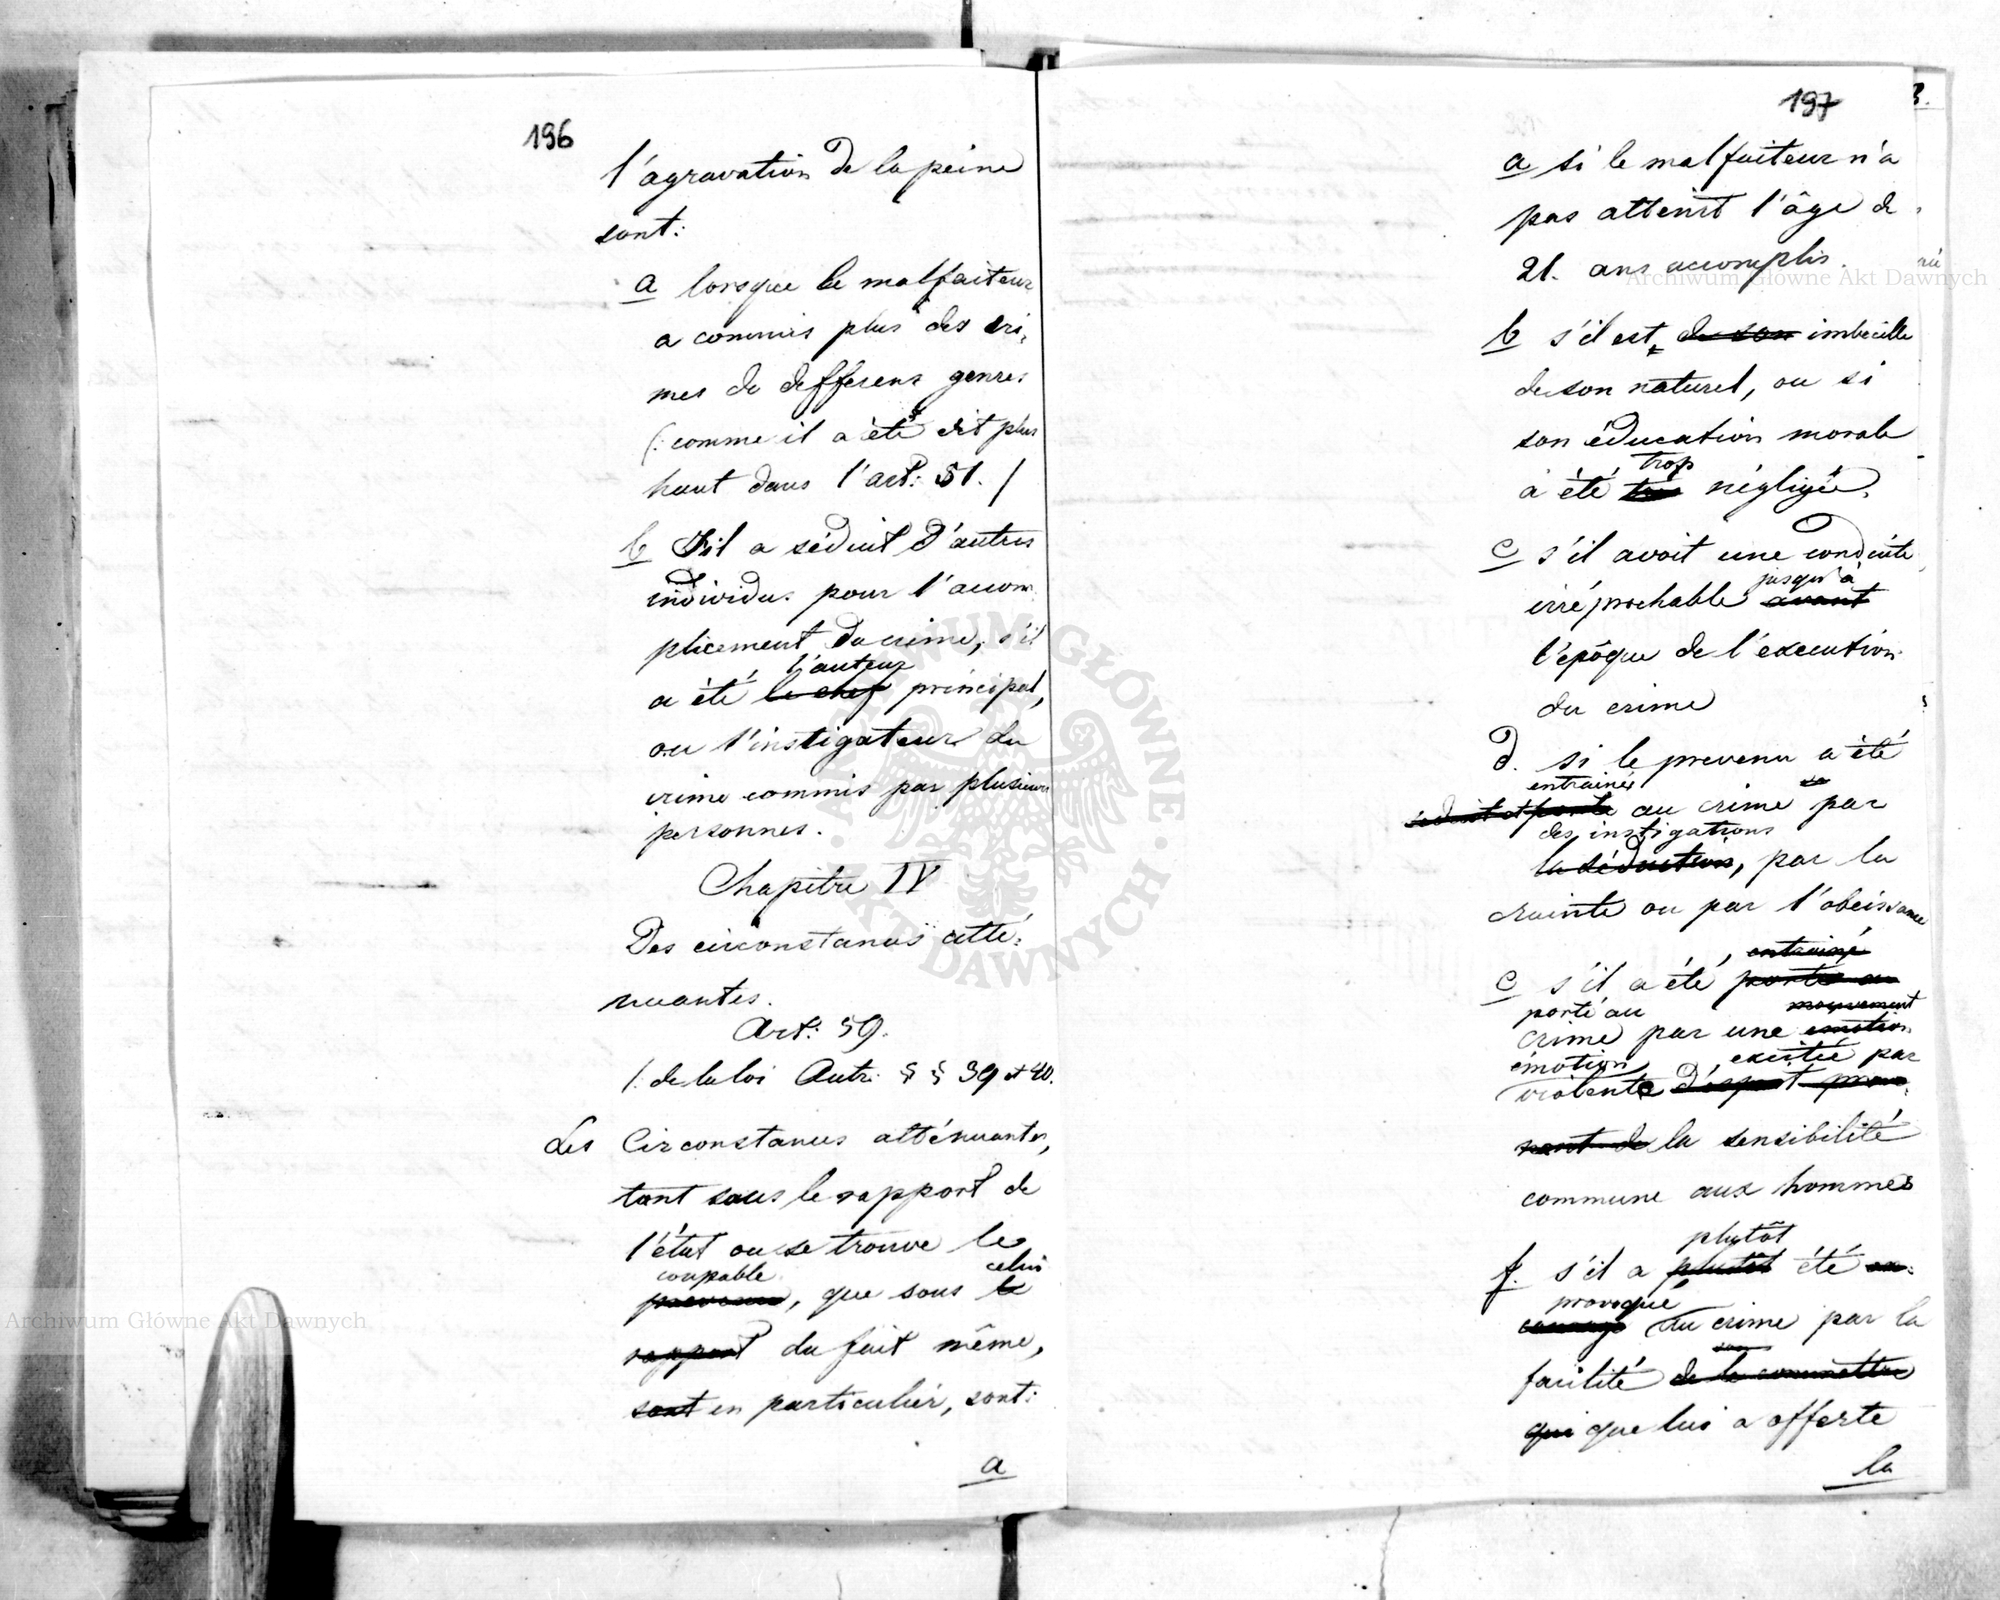 196
l'agravation de la peine
sont:
a lorsque le malfaiteur
a commis plus des cri,
mes de differens genres
(: comme il a été dit plus
haut dans l'art: 51. /
b S'il a séduit d'autres
individus pour l'accom
plicement du crime, s'il
l'auteur
a été le chef principal,
ou l'instigateur du
crime commis par plusieurs
personnes.
Chapitre IV
Des circonstances atté:
nuantes.
Art: 59.
/: de la loi Autr: § § 39 et 40.
Les Circonstances atténuantes,
tant sous le rapport de
l'état ou se trouve le
coupable celui
prevenu, que sous le
rapport du fait même,
sont en particulier, sont:
a
197
a si le malfaiteur n'a
pas atteint l'âge de
21. ans accomplis.
b s'il est de son imbecille
de son naturel, ou si
son éducation morale
trop
a été négligée.
c s'il avoit une conduite
jusqu'à
irréprochable avant
l'epôque de l'éxecution
du crime
d. si le prevenu a été
entrainér
seduit et porté au crime par
des instigations
la séduction, par la
crainte ou par l'obeissance
entrainé
e s'il a été porté au
porté au mouvement
crime par une emotion
émotion excitée par
violente d'esprit prove,
nant de la sensibilité
commune aux hommes
plutôt
f. s'il a plutôt été en:
provoqué
couragé au crime par la
facilité de le commettre
qui que lui a offerte
la
Archiwum Główne Akt Dawnych
Archiwum Główne Akt Dawnych
ARCHIWUM GŁÓWNE · AKT DAWNYCH ·